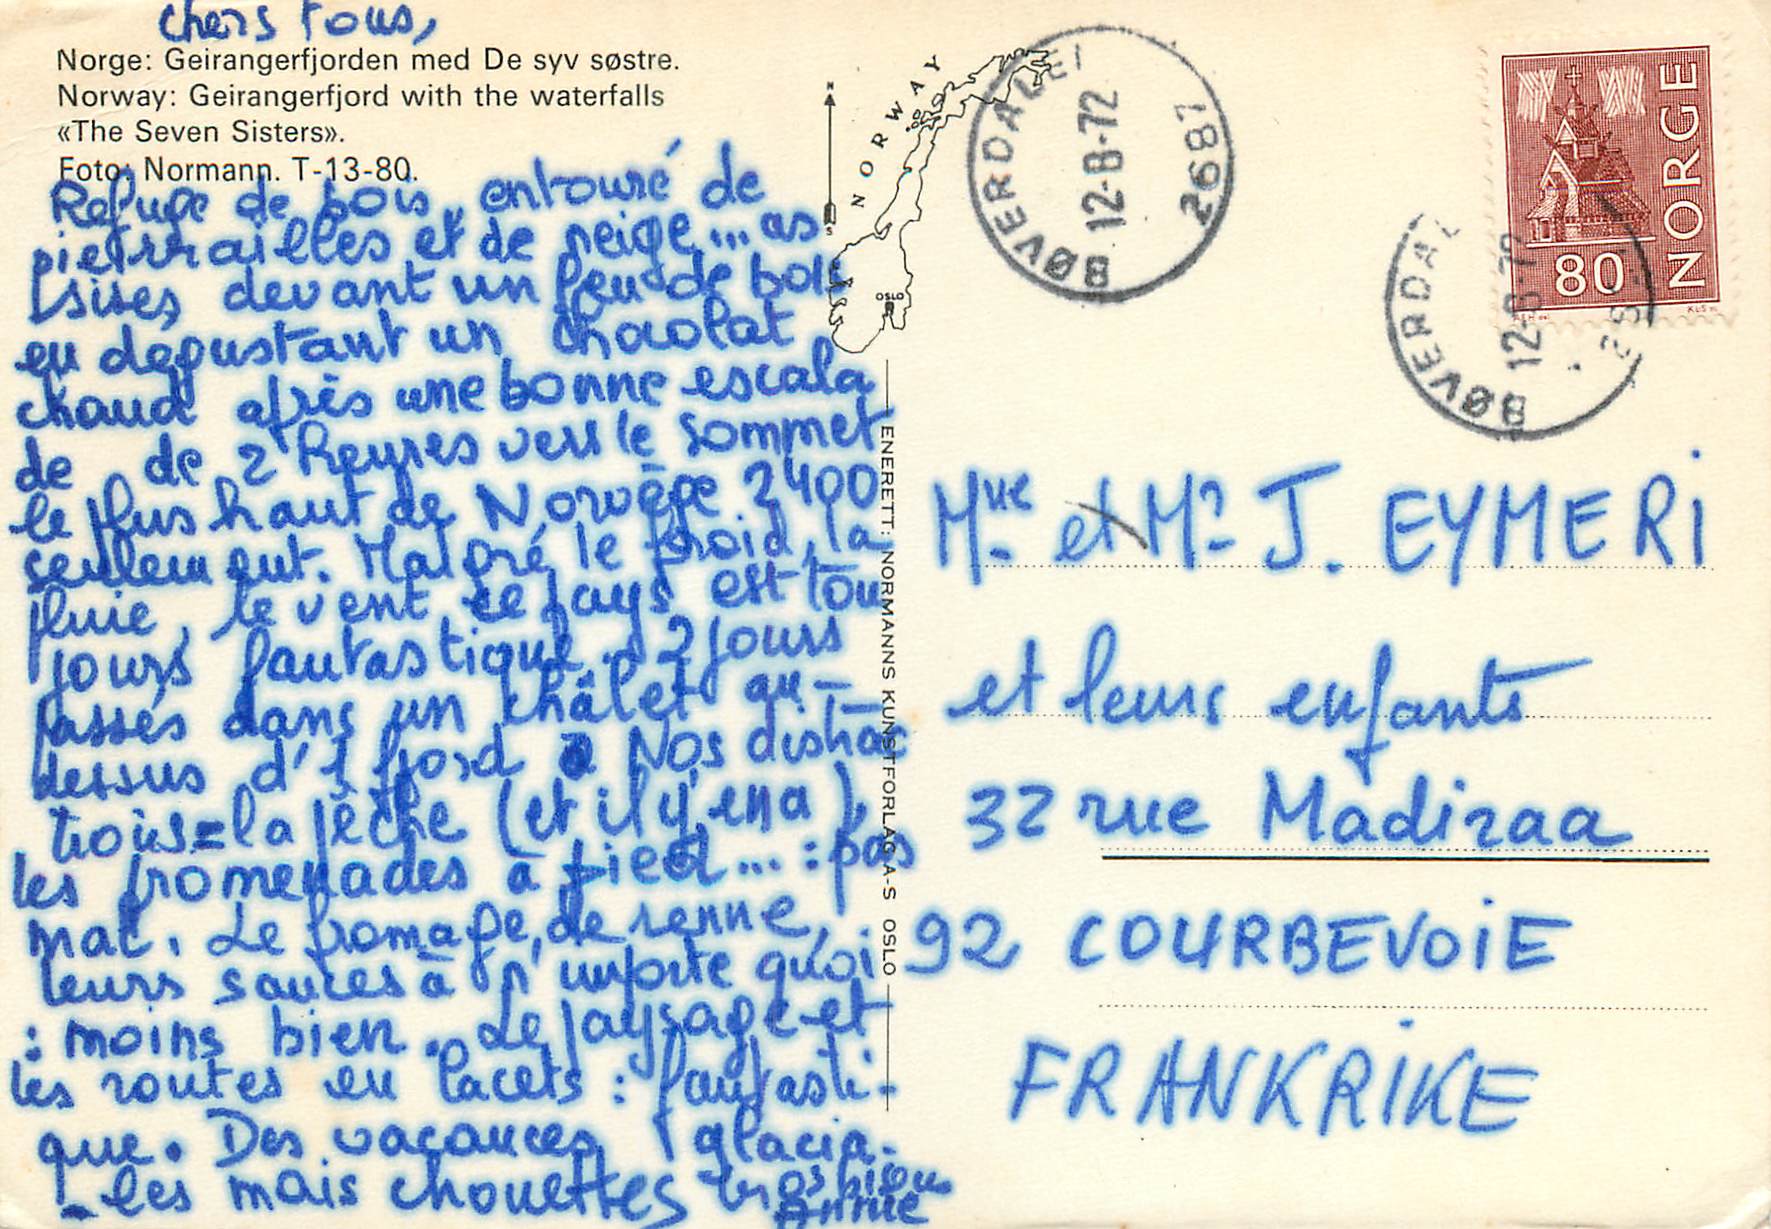 chers tous,
Norge: Geirangerfjorden med De syv søstre.
Norway: Geirangerfjord with the waterfalls
«The Seven Sisters».
Foto: Normann. T-13-80.
Refuge de bois, entouré de
pierrailles et de neige... as
sises devant un feu de bois
en degustant un chocolat
chaud après une bonne escala
de de 2 heures vers le sommet
le plus haut de Norvège 2400
seulement. Malgré le froid, la
pluie, le vent ce pays est tou
jours fantastique. 2 jours
passés dans un châlet au-
dessus d'1 fjord. Nos distrac
tions = la pêche (et il y en a),
les promenades à pied... : pas
mal. Le fromage de renne,
leurs sauces à n'importe quoi
: moins bien. Le paysage et
les routes en lacets : fantasti-
que. Des vacances glacia-
les mais chouettes Gros bisous
Annie
NORWAY
N
S
OSLO
ENERETT: NORMANNS KUNSTFORLAG A-S OSLO
BØVERDALEI
12-8-72
2687
NORGE
80
BØVERDAL
12-8-72
Mme et Mr J. EYMERI
et leurs enfants
32 rue Madiraa
92 COURBEVOIE
FRANKRIKE